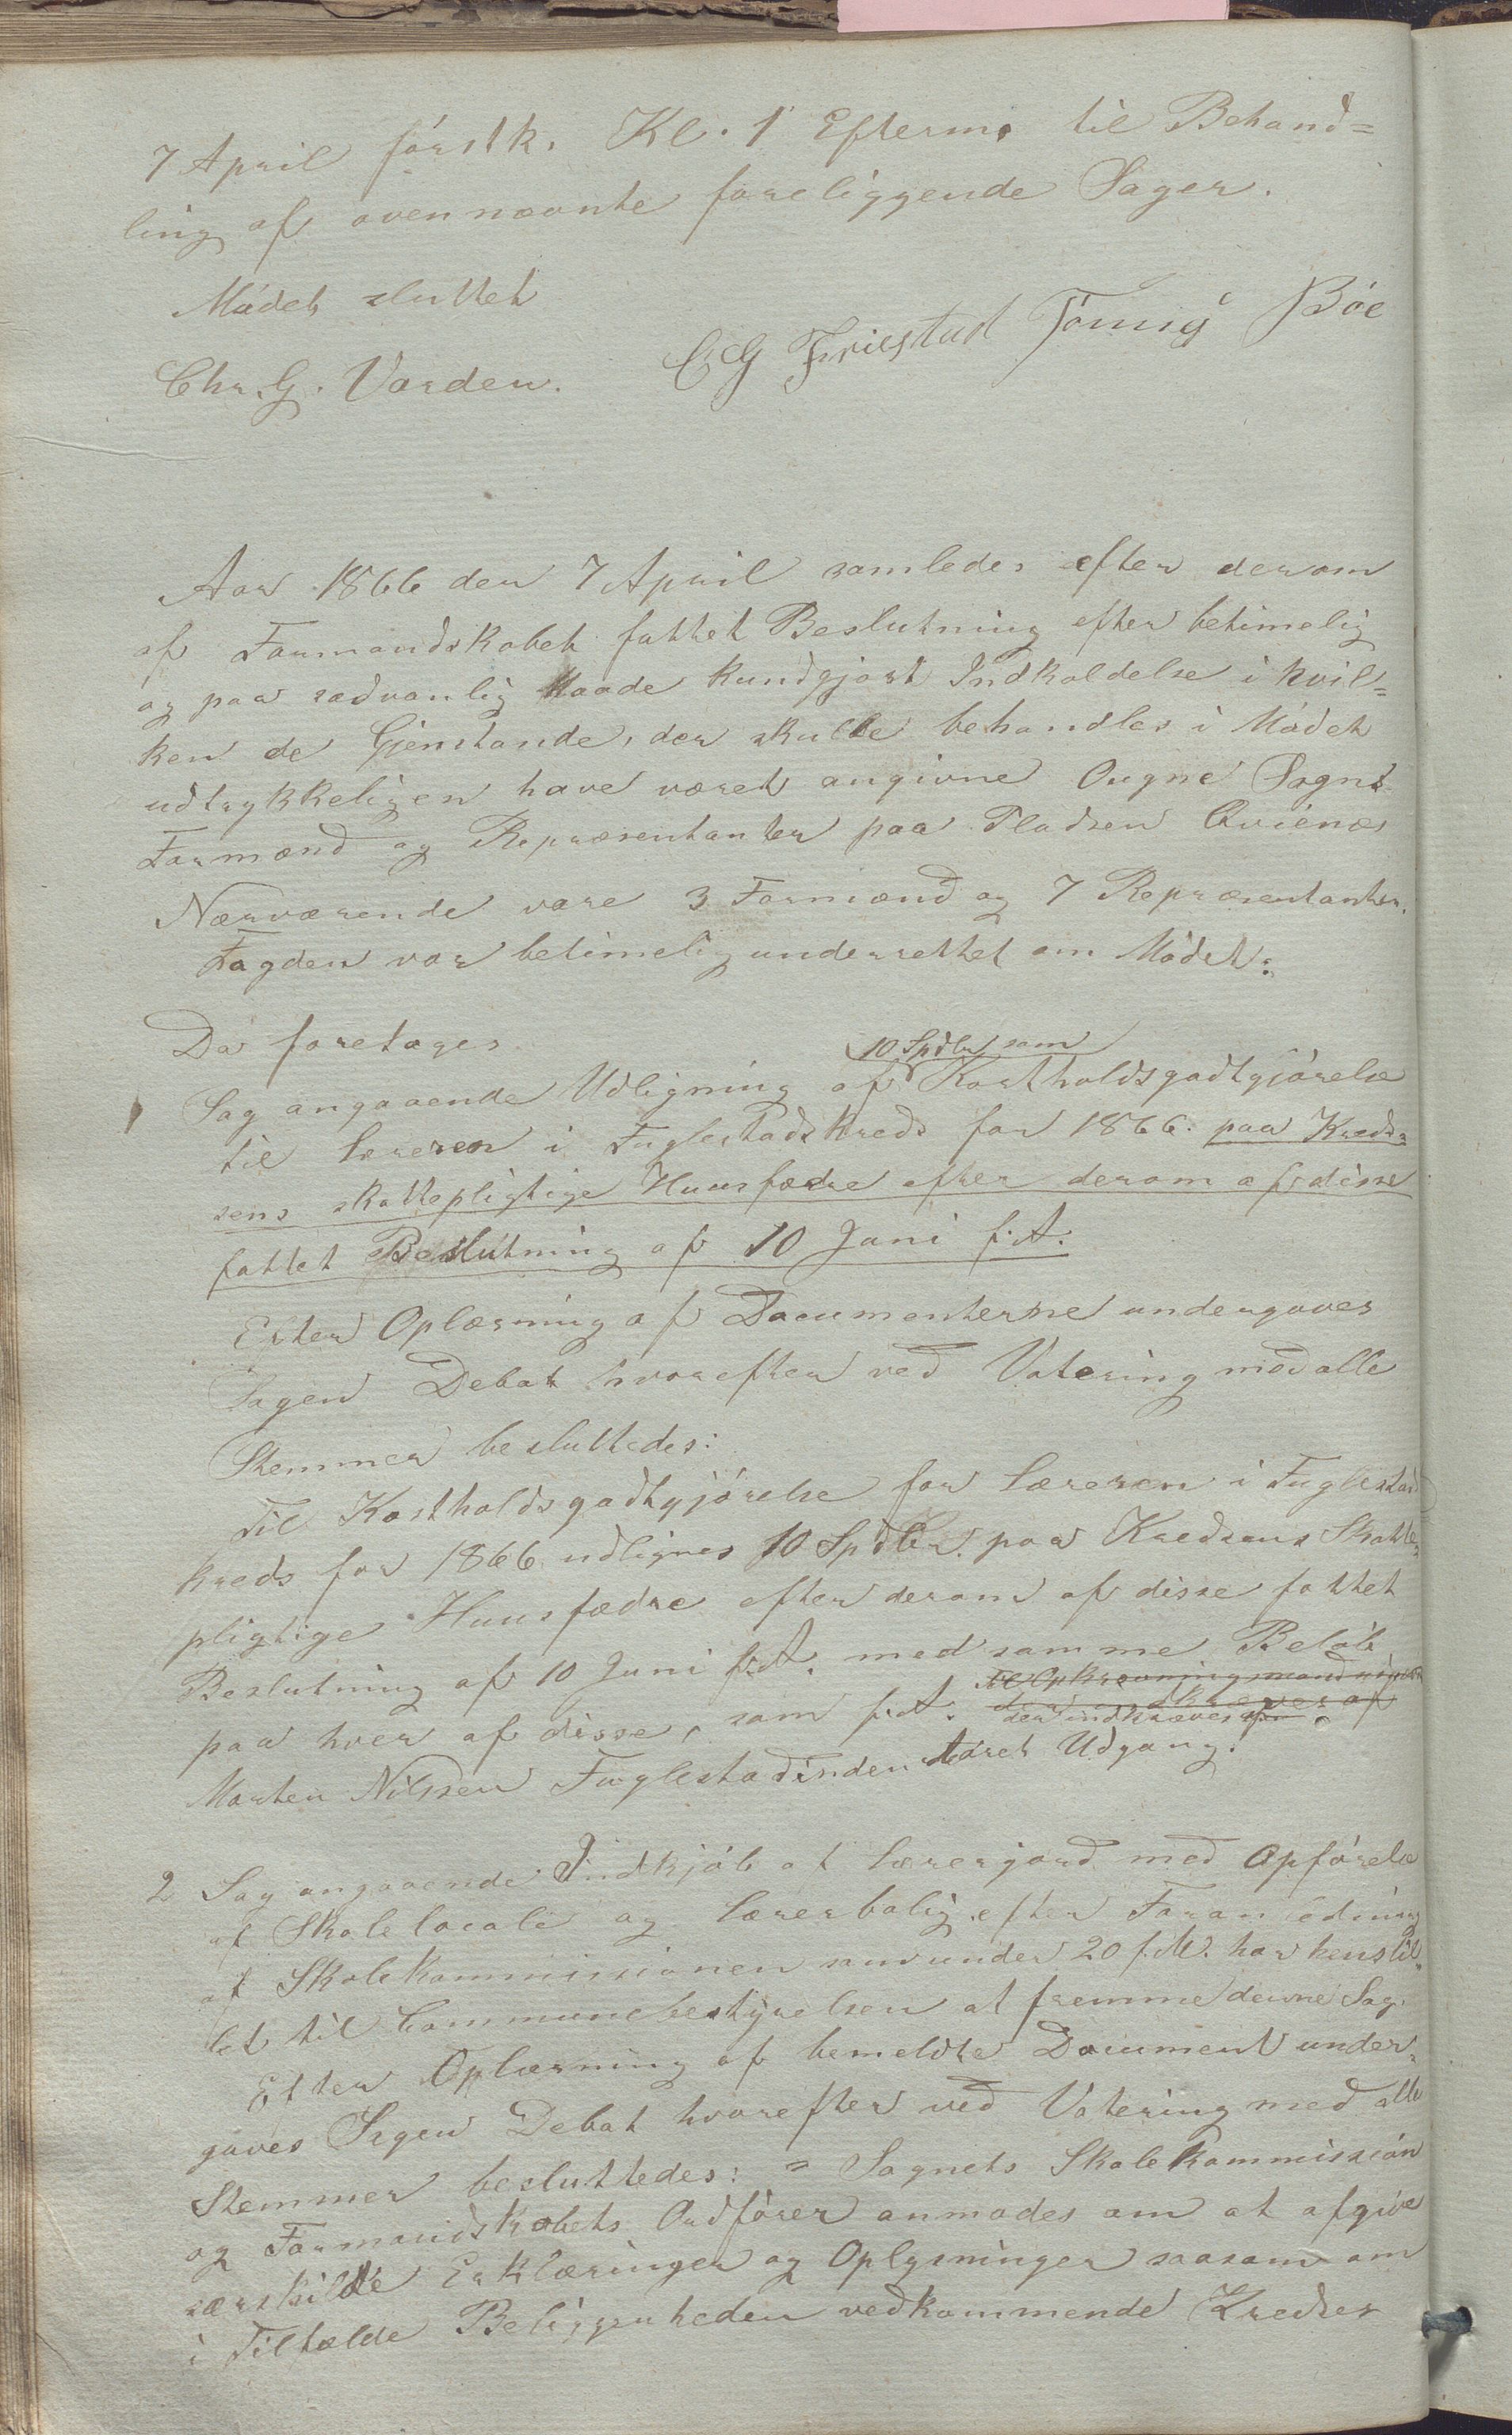 7 April förstk. Kl. 1 Efterm. til Behand=
ling af ovennævnte foreliggende Sager.
Mödet sluttet
Chr. G. Varden. C G Friestad Tönnes Böe
Aar 1866 den 7 April samledes efter derom
af Formandskabet fattet Beslutning efter betimelig
og paa sædvanlig Maade kundgjort Indkaldelse i hvil=
ken de Gjenstande, der skulle behandles i Mödet
udtrykkeligen have været angivne Ougne Sogns
Formænd og Repræsentanter paa Pladsen Qvienæs
Nærværende vare 3 Formænd og 7 Repræsentanter.
Fogden var betimelig underrettet om Mödet:
Da foretoges
10 Spdlr som
1 Sag angaaende Udligning af Kostholdsgodtgjörelse
til Læreren i Fuglestadskreds for 1866. paa Kred=
sens skattepligtige Huusfædre efter derom af disse
fattet Beslutning af 10 Juni f. A.
Efter Oplæsning af Documenterne undergaves
Sagen Debat hvorefter ved Votering med alle
Stemmer besluttedes:
Til Kostholdsgodtgjörelse for Læreren i Fuglestad
kreds for 1866 udlignes 10 Spdlr. paa Kredsens Skatte=
pligtige Huusfædre efter derom af disse fattet
Beslutning af 10 Juni f. A. med samme Belöb
paa hver af disse, som f. A. der indkræves af
Morten Nilssen Fuglestad inden Aaret Udgang.
2 Sag angaaende Indkjöb af Lærerjord med Opförelse
af Skolelocale og Lærerbolig efter Foranledning
af Skolekommissionen som under 20 f. M. har henstil=
let til Communebestyrelsen at fremme denne Sag.
Efter Oplæsning af bemeldte Document under=
gaves Sagen Debat hvorefter ved Votering med alle
Stemmer besluttedes: = Sognets Skolekommission
og Formandskabets Ordförer anmodes om at afgive
særskilde Erklæringer og Oplysninger saasom om
i Tilfælde Beliggenheden vedkommende Kredser